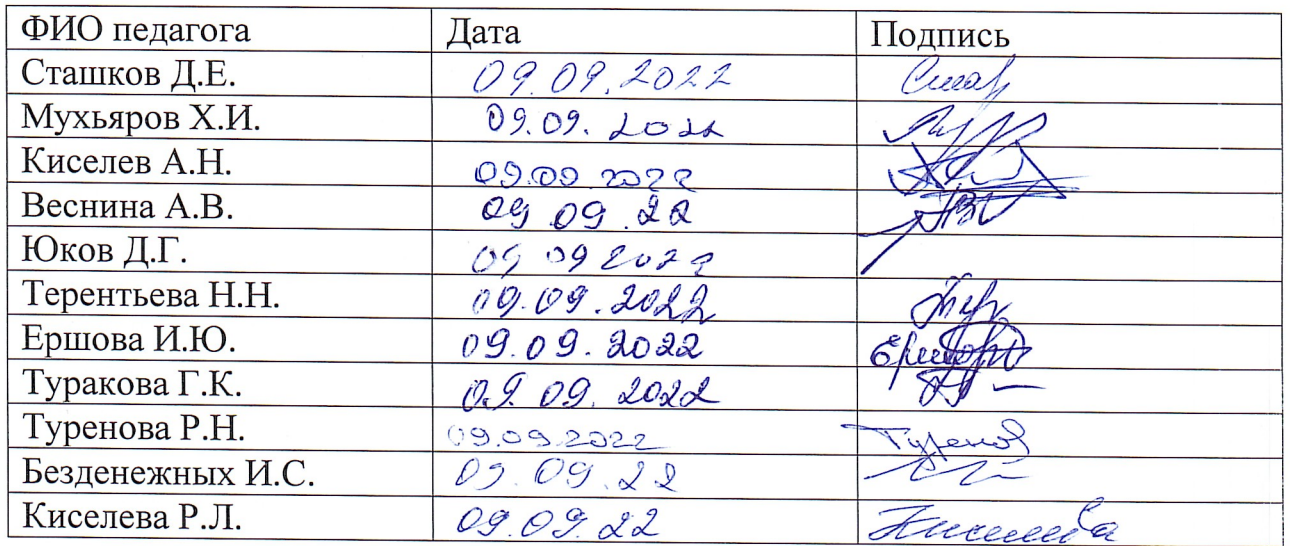 ФИО педагога Дата Подпись
Сташков Д.Е. 09.09.2022
Мухьяров Х.И. 09.09.2022
Киселев А.Н. 09.09 2022
Веснина А.В. 09.09.22
Юков Д.Г. 09 09 2022
Терентьева Н.Н. 09.09.2022
Ершова И.Ю. 09.09.2022
Туракова Г.К. 09.09.2022
Туренова Р.Н. 09.09.2022 Туренов
Безденежных И.С. 09.09.22
Киселева Р.Л. 09.09.22 Киселева